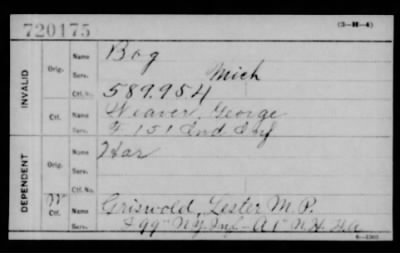 720175 (3-H-4)
INVALID
Orig. Name Bog
Serv. Mich
Ctf. No. 589.954
Ctf. Name Weaver, George
Serv. F 151 Ind Inf
DEPENDENT
Orig. Name Har
Serv.
Ctf. No.
W Ctf. Name Griswold, Lester M. P.
Serv. I 99" N.Y. Inf - A 1" N.H. H.A